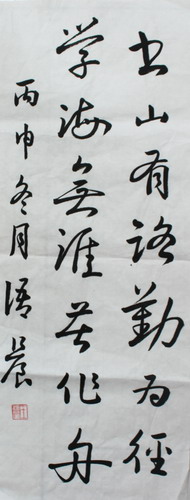 书山有路勤为徑
学海無涯苦作舟
丙申冬月 晨